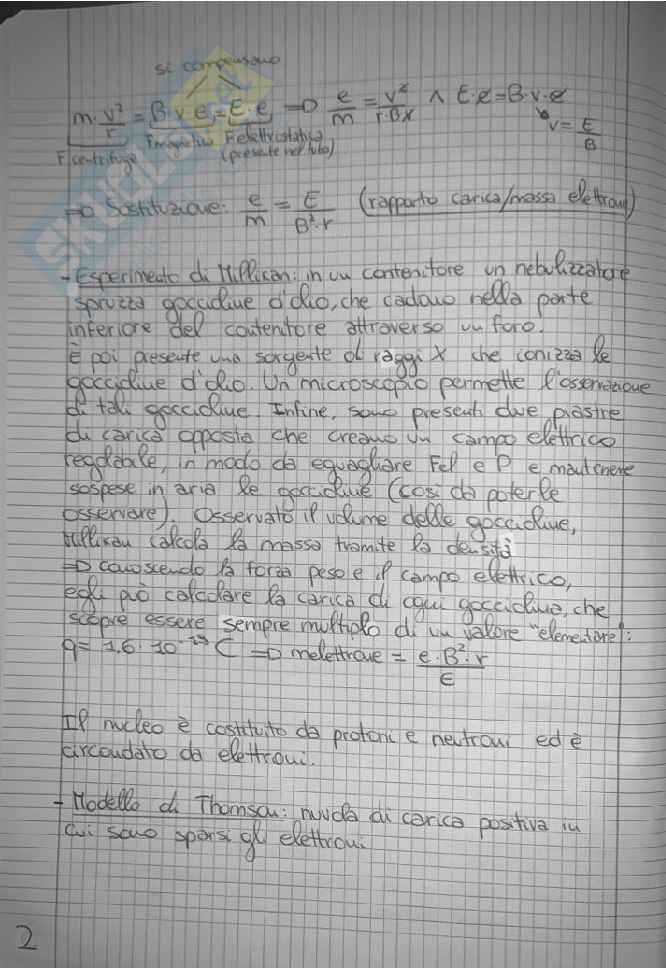 si compensano
m·v²/r = B·v·e = E·e ⇒ e/m = v²/r·Bx ∧ E·e = B·v·e
v = E/B
F centrifuga Fmagnetica Felettrostatica
(presente nel tubo)
⇒ Sostituzione: e/m = E/B²·r (rapporto carica/massa elettroni)
- Esperimento di Millikan: in un contenitore un nebulizzatore
spruzza goccioline d'olio, che cadono nella parte
inferiore del contenitore attraverso un foro.
È poi presente una sorgente di raggi X che ionizza le
goccioline d'olio. Un microscopio permette l'osservazione
di tali goccioline. Infine, sono presenti due piastre
di carica opposta che creano un campo elettrico
regolabile, in modo da eguagliare Fel e P e mantenere
sospese in aria le goccioline (così da poterle
osservare). Osservato il volume delle goccioline,
Millikan calcola la massa tramite la densità
⇒ conoscendo la forza peso e il campo elettrico,
egli può calcolare la carica di ogni gocciolina, che
scopre essere sempre multiplo di un valore "elementare":
q = 1,6·10⁻¹⁹ C ⇒ melettrone = e·B²·r/E
Il nucleo è costituito da protoni e neutroni ed è
circondato da elettroni.
- Modello di Thomson: nuvola di carica positiva in
cui sono sparsi gli elettroni
2